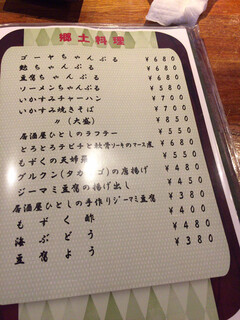 郷土料理
ゴーヤちゃんぷる ￥680
麩ちゃんぷる ￥680
豆腐ちゃんぷる ￥680
ソーメンちゃんぷる ￥580
いかすみチャーハン ￥700
いかすみ焼きそば ￥700
〃（大盛）
居酒屋ひとしのラフテー ￥680
とろとろテビチと軟骨ソーキのマース煮 ￥680
もずくの天婦羅 ￥550
グルクン(タカサゴ)の唐揚げ
ジーマミ豆腐の揚げ出し ￥450
居酒屋ひとしの手作りジーマミ豆腐 ￥400
もずく酢 ￥380
海ぶどう ￥480
豆腐よう ￥380